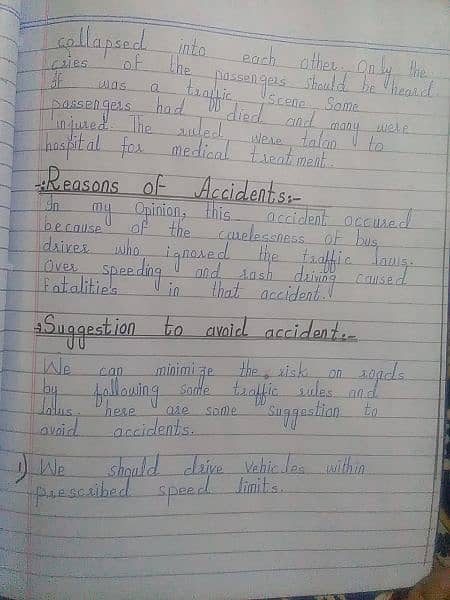 collapsed into each other. Only the
cries of the passengers should be heard.
It was a traffic scene. Some
passengers had died and many were
injured. The ruled were talan to
hospital for medical treatment.
-:Reasons of Accidents:-
In my Opinion, this accident occured
because of the carelessness of bus
driver who ignored the traffic laws.
Over speeding and rash driving caused
Fatalities in that accident.
:Suggestion to avoid accident:-
We can minimize the risk on roads
by following some traffic rules and
laws. here are some suggestion to
avoid accidents.
1) We should drive vehicles within
prescribed speed limits.